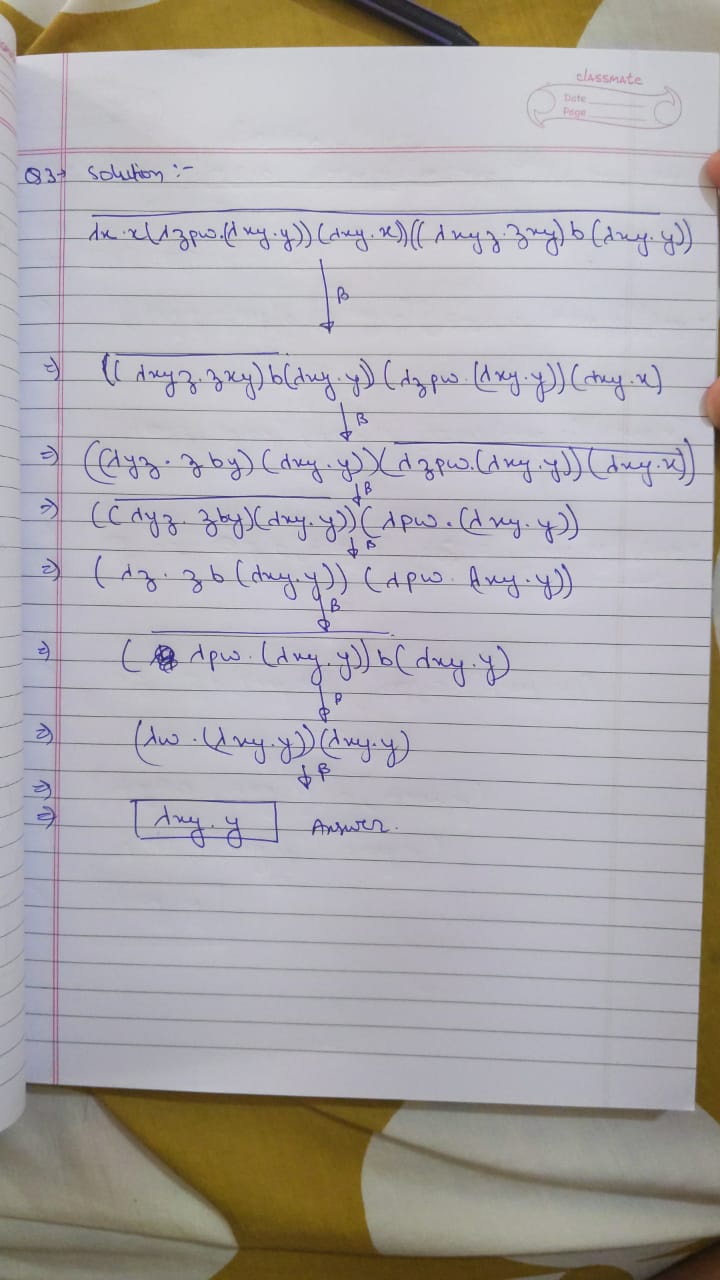 classmate
Date
Page
Q3→ Solution :-
λx.x(λzpw.(λxy.y))(λxy.x))((λxyz.zxy)b(λxy.y))
↓β
⇒ ((λxyz.zxy)b(λxy.y))(λzpw.(λxy.y))(λxy.x)
↓β
⇒ ((λyz.zby)(λxy.y))(λzpw.(λxy.y))(λxy.x))
↓β
⇒ ((λyz.zby)(λxy.y))(λpw.(λxy.y))
↓β
⇒ (λz.zb(λxy.y))(λpw.λxy.y))
↓β
⇒ (λpw.(λxy.y))b(λxy.y)
↓β
⇒ (λw.(λxy.y))(λxy.y)
↓β
⇒
⇒ λxy.y Answer.